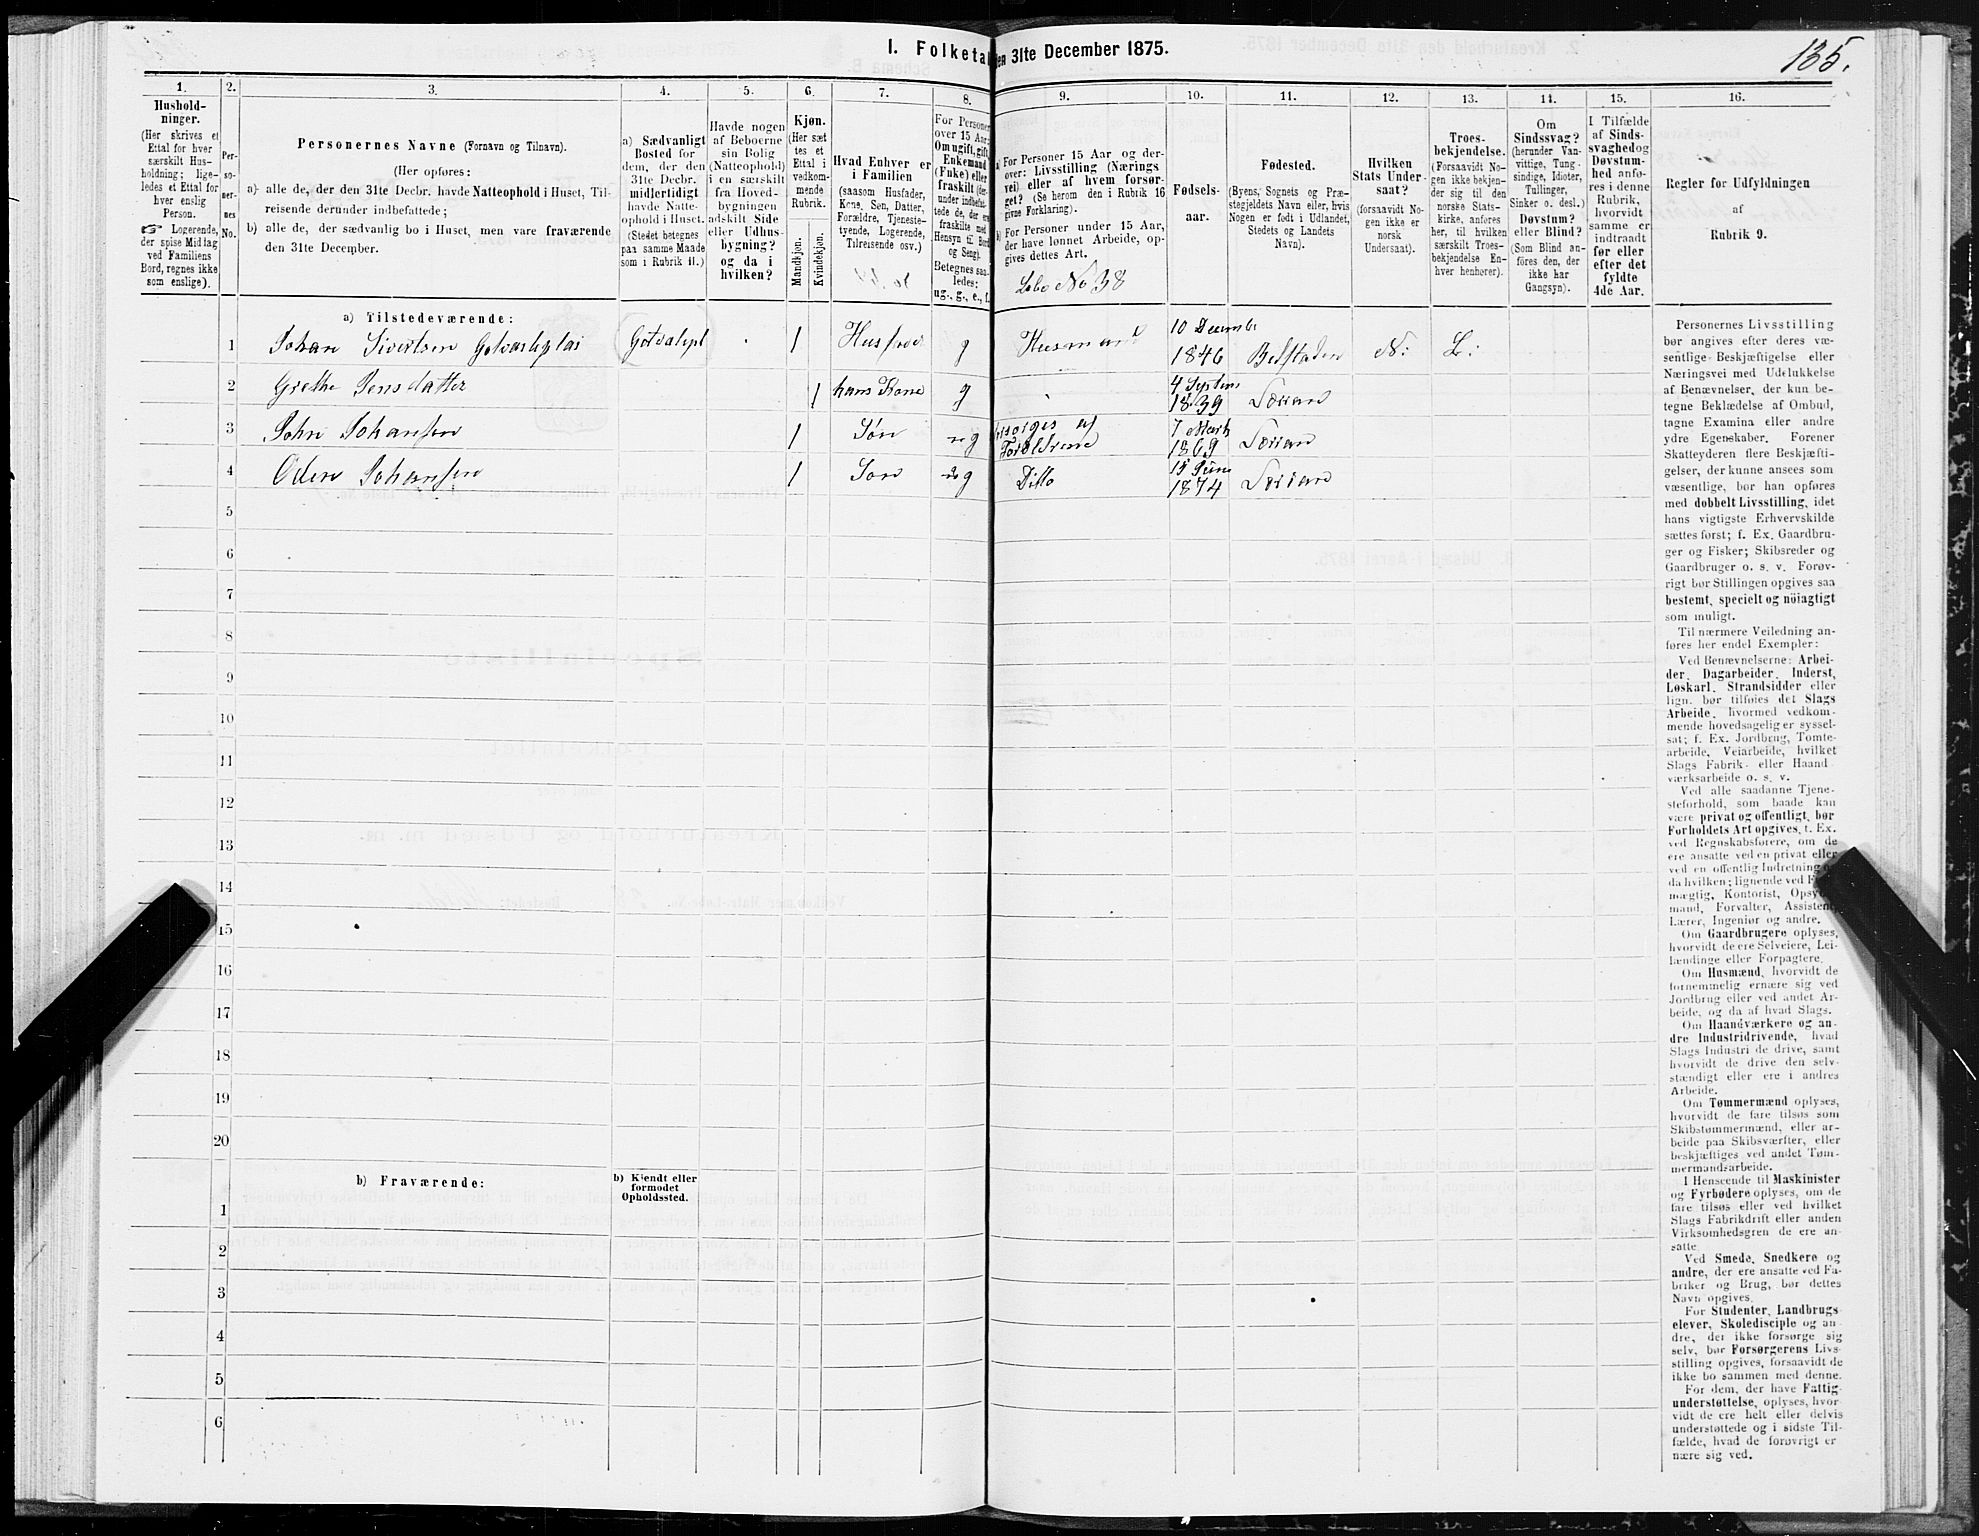 I. Folketal den 31te December 1875.
135.
1. 2. 3. 4. 5. 6. 7. 8. 9. 10. 11. 12. 13. 14. 15. 16.
Hushold-
ninger.
(Her skrives et
Ettal for hver
særskilt Hus-
holdning; lige-
ledes et Ettal for
hver enslig
Person.
☞ Logerende,
der spise Middag
ved Familiens
Bord, regnes ikke
som enslige).
Per-
so-
ner-
nes
No.
Personernes Navne (Fornavn og Tilnavn).
(Her opføres:
a) alle de, der den 31te Decbr. havde Natteophold i Huset, Til-
reisende derunder indbefattede;
b) alle de, der sædvanlig bo i Huset, men vare fraværende
den 31te December.
a) Sædvanligt
Bosted for
dem, der den
31te Decbr.
midlertidigt
havde Natte-
ophold i Huset.
(Stedet betegnes
paa samme Maade
som i Rubrik 11.)
Havde nogen
af Beboerne
sin Bolig
(Natteophold)
i en særskilt
fra Hoved-
bygningen
adskilt Side
eller Udhus-
bygning?
og da i
hvilken?
Kjøn.
(Her sæt
tes et
Ettal i
vedkom-
mende
Rubrik.
Mandkjøn.
Kvindekjøn.
Hvad Enhver er
i Familien
(saasom Husfader,
Kone, Søn, Datter,
Forældre, Tjeneste-
tyende, Logerende,
Tilreisende osv.)
For Personer
over 15 Aar:
Om ugift, gift,
Enkemand
(Enke) eller
fraskilt (der-
under indbefat-
tede de, der ere
fraskilte med
Hensyn til Bord
og Seng).
Betegnes saa-
ledes:
ug., g., e., f.
a) For Personer 15 Aar og der-
over: Livsstilling (Nærings
vei) eller af hvem forsør-
get? (Se herom den i Rubrik 16
givne Forklaring).
b) For Personer under 15 Aar,
der have lønnet Arbeide, op-
gives dettes Art.
Løbe No 38
Fødsels-
aar.
Fødested.
(Byens, Sognets og Præ-
stegjeldets Navn eller, hvis
Nogen er født i Udlandet,
Stedets og Landets
Navn).
Hvilken
Stats Under-
saat?
(forsaavidt No-
gen ikke er
norsk
Undersaat).
Troes-
bekjendelse.
(Forsaavidt No-
gen ikke bekjen-
der sig til den
norske Stats-
kirke, anføres
her, til hvilken
særskilt Troes-
bekjendelse En-
hver henhører).
Om
Sindssvag?
(herunder Van-
vittige, Tung-
sindige, Idioter,
Tullinger,
Sinker o. desl.)
Døvstum?
eller Blind?
(Som Blind an-
føres den, der
ikke har
Gangsyn).
I Tilfælde
af Sinds-
svaghed og
Døvstum-
hed anfø-
res i denne
Rubrik,
hvorvidt
samme er
indtraadt
før eller
efter det
fyldte
4de Aar.
Regler for Udfyldningen
af
Rubrik 9.
a) Tilstedeværende:
1 Johan Sivertsen 1 g 10 1846 N: L:
2 Grethe Jensdatter 1 hans Kone g 4 1839
3 John Johansen 1 Søn ug af 7 Marts 1869
4 Oden Johansen 1 Søn ug Ditto 15 1874
5
6
7
8
9
10
11
12
13
14
15
16
17
18
19
20
b) Fraværende:
b) Kjendt eller
formodet
Opholdssted.
1
2
3
4
5
6
Personernes Livsstilling
bør angives efter deres væ-
sentlige Beskjæftigelse eller
Næringsvei med Udelukkelse
af Benævnelser, der kun be-
tegne Beklædelse af Ombud,
tagne Examina eller andre
ydre Egenskaber. Forener
Skatteyderen flere Beskjæfti-
gelser, der kunne ansees som
væsentlige, bør han opføres
med dobbelt Livsstilling, idet
hans vigtigste Erhvervskilde
sættes først; f. Ex. Gaardbru-
ger og Fisker; Skibsreder og
Gaardbruger o. s. v. Forøv-
rigt bør Stillingen opgives saa
bestemt, specielt og nöiagtigt
som muligt.
Til nærmere Veiledning an-
føres her endel Exempler:
Ved Benævnelserne: Arbei-
der, Dagarbeider, Inderst,
Løskarl, Strandsidder eller
lign. bør tilføies det Slags
Arbeide, hvormed vedkom-
mende hovedsagelig er syssel-
sat; f. Ex. Jordbrug, Tomte-
arbeide, Veiarbeide, hvilket
Slags Fabrik- eller Haand-
værksarbeide o. s. v.
Ved alle saadanne Tjene-
steforhold, som baade kan
være privat og offentligt, bør
Forholdets Art opgives, t. Ex.
ved Regnskabsførere, om de
ere ansatte ved en privat eller
ved en offentlig Indretning
da hvilken; lignende ved
mægtig, Kontorist,
mand, Forvalter, Assistent,
Lærer, Ingeniør og andre.
Om Gaardbrugere oplyses,
hvorvidt de ere Selveiere, Lei-
lændinge eller Forpagtere.
Om Husmænd, hvorvidt de
fornemmelig ernære sig ved
Jordbrug eller ved andet Ar-
beide, og da af hvad Slags.
Om Haandværkere og an-
dre Industridrivende, hvad
Slags Industri de drive, samt
hvorvidt de drive den selv-
stændigt eller ere i andres
Arbeide.
Om Tømmermænd oplyses,
hvorvidt de fare tilsøs som
Skibstømmermænd, eller ar-
beide paa Skibsværfter, eller
beskjæftiges ved andet Tøm-
mermandsarbeide.
I Henseende til Maskinister
og Fyrbødere oplyses, om de
fare tilsøs eller ved hvilket
Slags Fabrikdrift eller anden
Virksomhedsgren de ere an-
satte.
Ved Smede, Snedkere og
andre, der ere ansatte ved Fa-
briker og Brug, bør dettes
Navn opgives.
For Studenter, Landbrugs-
elever, Skoledisciple og an-
dre, der ikke forsørge sig
selv, bør Forsørgerens Livs-
stilling opgives, forsaavidt de
ikke bo sammen med denne.
For dem, der have Fattig-
understøttelse, oplyses, hvor-
vidt de ere helt eller delvis
understøttede og i sidste Til-
fælde, hvad de forøvrigt er
nære sig ved.